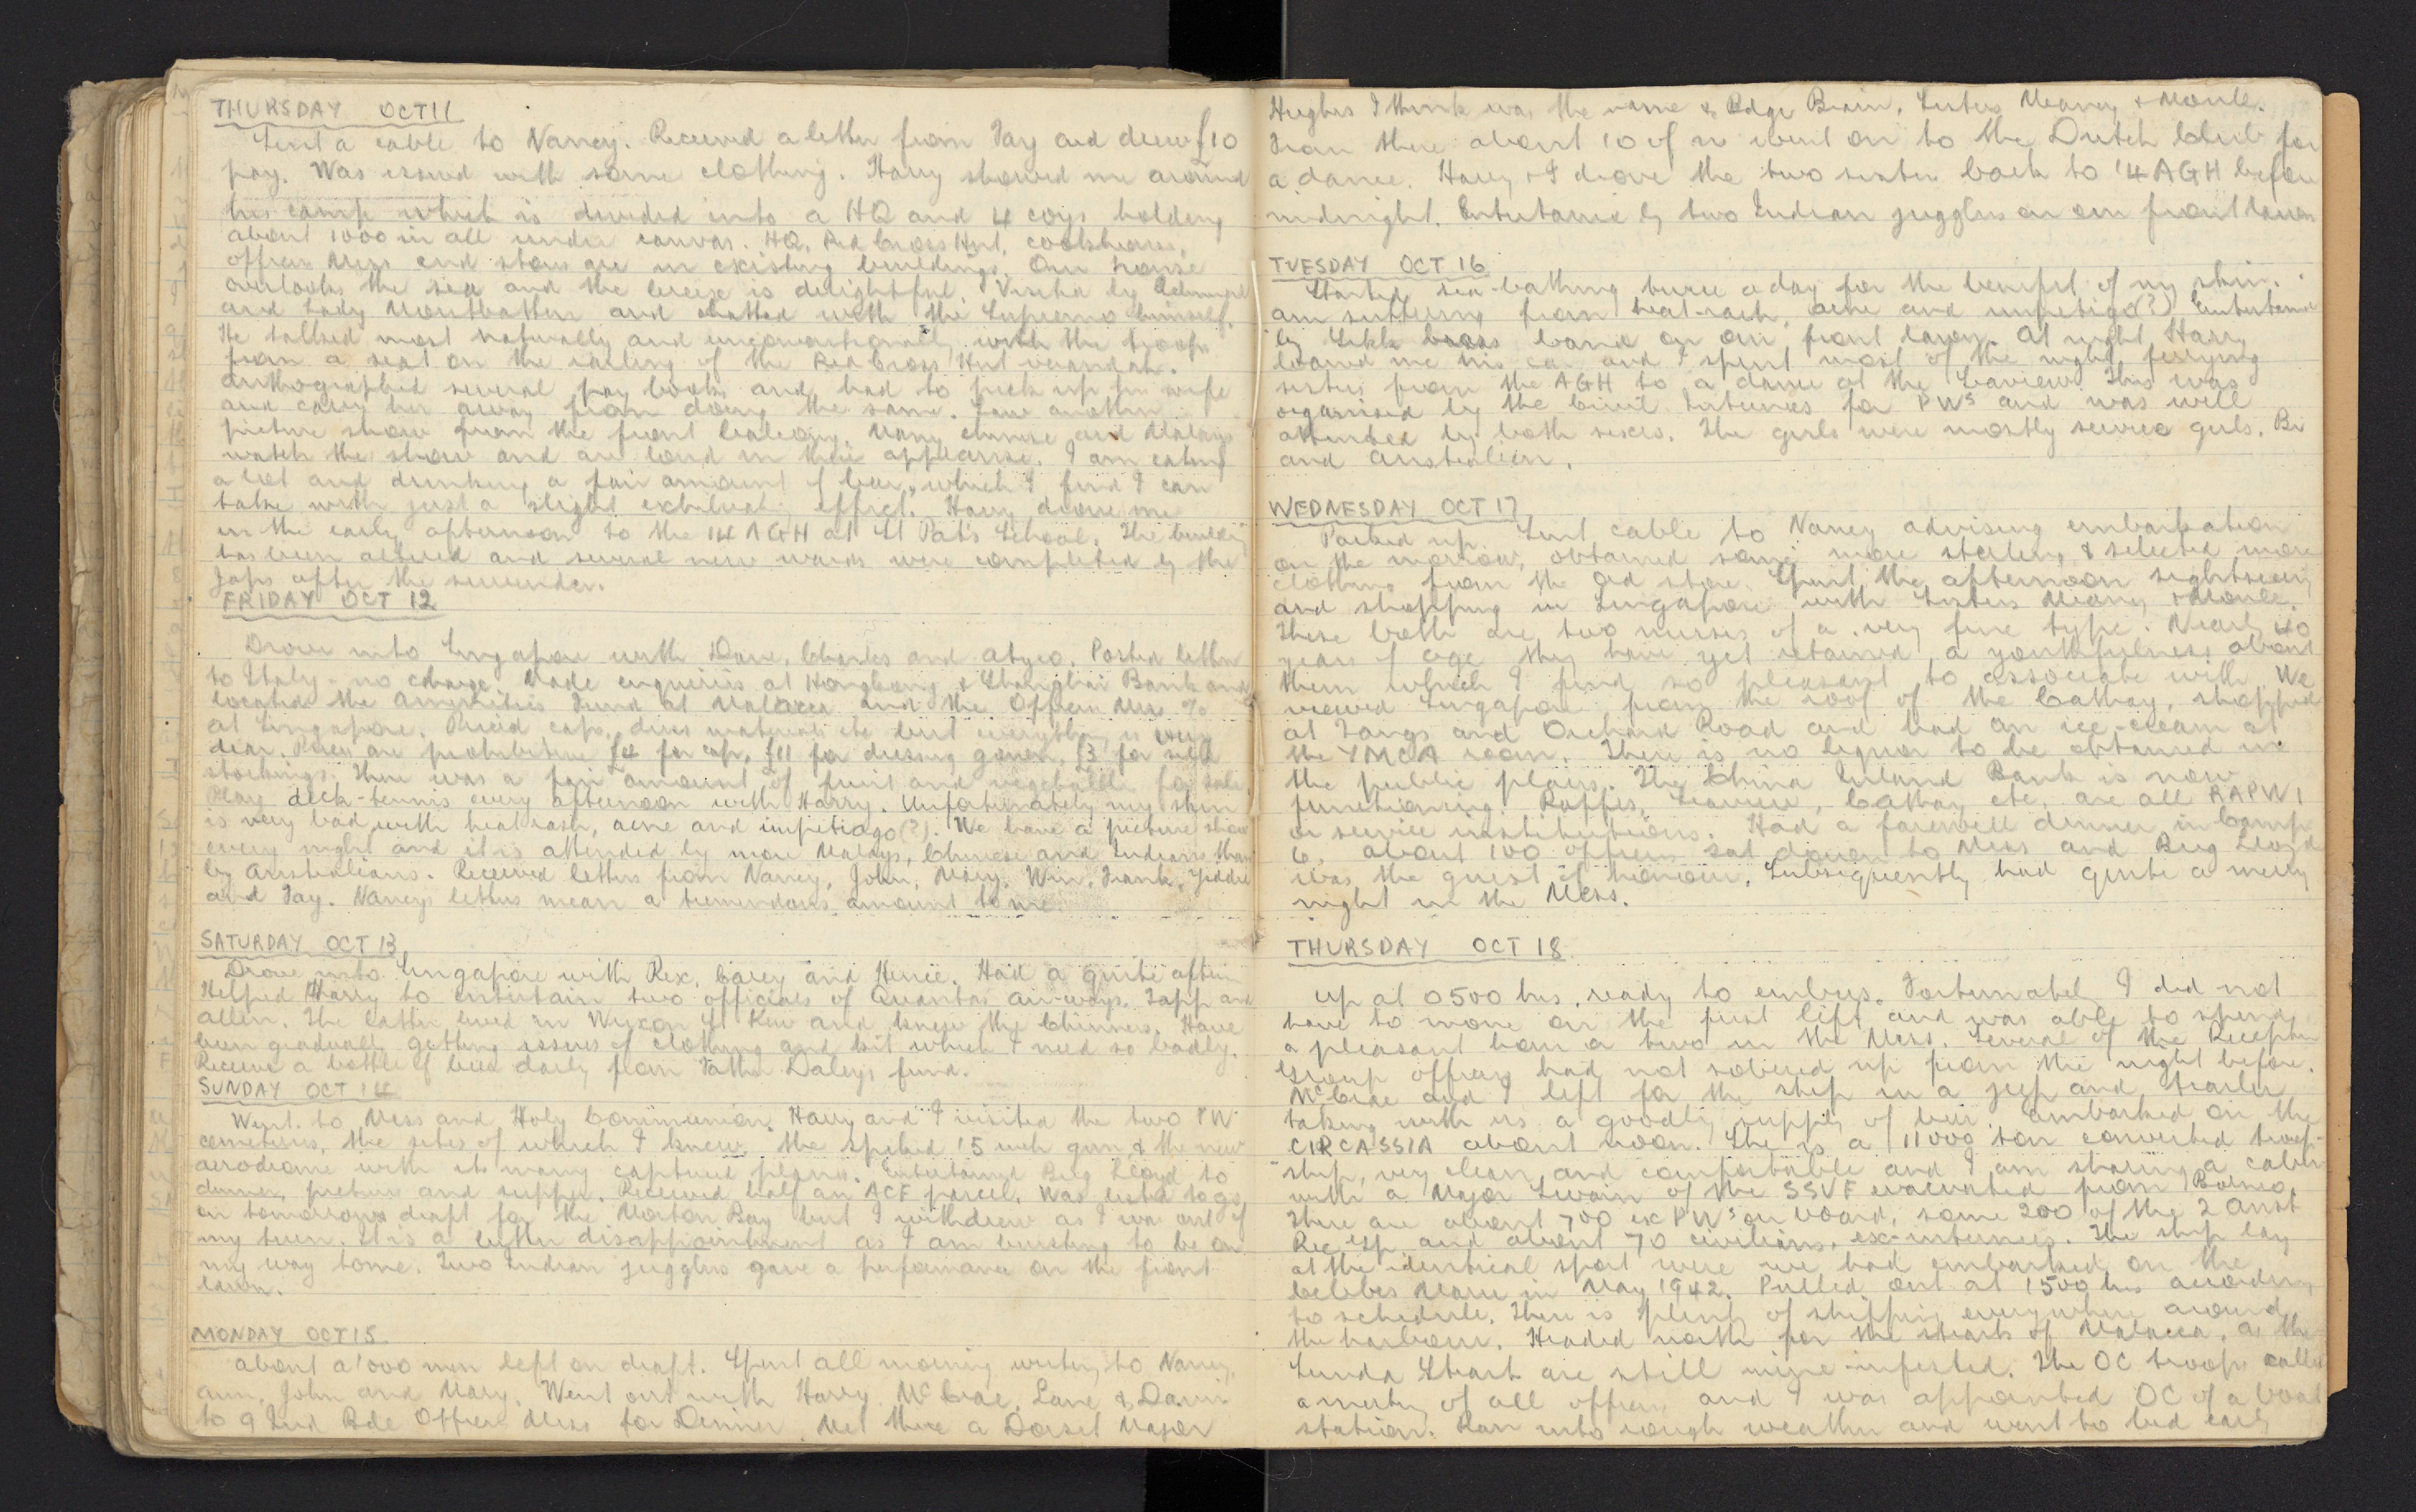 THURSDAY OCT 11
Sent a cable to Nancy. Received a letter from Tay and drew £10
pay. Was issued with some clothing. Harry showed me around
his camp which is divided into a HQ and 4 coys holding
about 1000 in all under canvas. HQ, Red Cross Hut, cookhouses,
officers Mess and stores are in existing buildings. Our house
overlooks the sea and the breeze is delightful. Visited by Admiral
and Lady Mountbatten and chatted with the Supremo himself.
He talked most naturally and unconventionally with the troops
from a seat on the railing of the Red Cross Hut verandah.
Authographed several pay books and had to pick up his wife
and carry her away from doing the same. Saw another
picture show from the front balcony. Many chinese and Malays
watch the show and are loud in their applause. I am eating
a lot and drinking a fair amount of beer, which I find I can
take with just a slight exhilarating effect. Harry drove me
in the early afternoon to the 14 AGH at St Pat's School. The building
has been altered and several new wards were completed by the
Japs after the surrender.
FRIDAY OCT 12
Drove into Singapore with Dave, Charles and Atyeo. Posted letter
to Italy - no charge. Made enquiries at Hongkong & Shanghai Bank and
located the Amenities Fund at Malacca and the Officers Mess %
at Singapore. Priced caps, dress materials etc but everything is very
dear. Prices are prohibitive £4 for cap, £11 for dressing gown, £3 for silk
stockings. There was a fair amount of fruit and vegetable for sale.
Play deck-tennis every afternoon with Harry. Unfortunately my skin
is very bad with heat rash, acne and impetiago(?). We have a picture show
every night and it is attended by more Malays, Chinese and Indians than
by Australians. Received letters from Nancy, John, Mary, Win, Frank,
and Tay. Nancy's letters mean a tremendous amount to me.
SATURDAY OCT 13
Drove into Singapore with Rex, Carey and Hence. Had a quite aftern
Helped Harry to entertain two officials of Quantas air-ways. Tapp and
Allen. The latter lived in St Kew and knew the Chinners. Have
been gradually getting issues of clothing and kit which I need so badly.
Receive a bottle of beer daily from Father Daleys fund.
SUNDAY OCT 14
Went to Mass and Holy Communion. Harry and I visited the two PW
cemeteries, the sites of which I knew, the spiked 15 inch gun & the new
aerodrome with its many captured planes. Entertained Brig Lloyd to
dinner, pictures and supper. Received half an ACF parcel. Was listed to go
on tomorrows draft for the Moreton Bay but I withdrew as I was out of
my turn. It is a bitter disappointment as I am bursting to be on
my way home. Two Indian jugglers gave a performance on the front
lawn.
MONDAY OCT 15
About a '000 men left on draft. Spent all morning writing to Nancy,
Ann, John and Mary. Went out with Harry, McCrae, Lane & Davis
to 9 Ind Bde Officers Mess for Dinner. Met there a Dorset Major
Hughes I think was the name & Bdge Brain, Sisters Meaney & Moule.
From there about 10 of us went on to the Dutch Club for
a dance. Harry & I drove the two sisters back to '4 AGH before
midnight. Entertained by two Indian jugglers on our front lawn
TUESDAY OCT 16
Started sea-bathing twice a day for the benefit of my skin.
am suffering from heat-rash, acne and impetigo(?) Entertained
by Sikh brass band on our front lawn. At night Harry
loaned me his car and I spent most of the night ferrying
sisters from the AGH to a dance at the Seaview. This was
organised by the Civil Internees for PWs and was well
attended by both sexes. The girls were mostly service girls. Bri
and Australian.
WEDNESDAY OCT 17
Packed up. Sent cable to Nancy advising embarkation
on the morrow, obtained some more sterling & selected more
clothing from the Ord store. Spent the afternoon sightseeing
and shopping in Singapore with Sisters Meaney & Moule.
These both are two nurses of a very fine type. Nearly 40
years of age they have yet retained a youthfulness about
them which I find so pleasant to associate with. We
viewed Singapore from the roof of the Cathay, shopped
at Tangs and Orchard Road and had an ice-cream at
the YMCA room. There is no liquor to be obtained in
the public places. The China Inland Bank is now
functioning. Raffles, Seaview, Cathay etc, are all RAPWI
or service institutions. Had a farewell dinner in Camp
6, about 100 officers sat down to Mess and Brig Lloyd
was the guest of honour. Subsequently had quite a merry
night in the Mess.
THURSDAY OCT 18
Up at 0500 hrs, ready to embus. Fortunately I did not
have to move on the first lift and was able to spend
a pleasant hour or two in the Mess. Several of the Reception
Group officers had not sobered up from the night before.
McCrae and I left for the ship in a jeep and trailer
taking with us a goodly supply of beer. Embarked on the
CIRCASSIA about noon. She is a 11000 ton converted troop-
ship, very clean and comfortable and I am sharing a cabin
with a Major Swain of the SSVF evacuated from Borneo.
There are about 700 ex PWs on board, some 200 of the 2 Aust
Rec Gp and about 70 civilians, ex-internees. The ship lay
at the identical spot were we had embarked on the
Celebes Maru in May 1942. Pulled out at 1500 hrs according
to schedule. There is plenty of shipping everywhere around
the harbour. Headed north for the straits of Malacca, as the
Sunda Strait are still mine-infested. The OC troops called
a meeting of all officers and I was appointed OC of a boat
station. Ran into rough weather and went to bed early